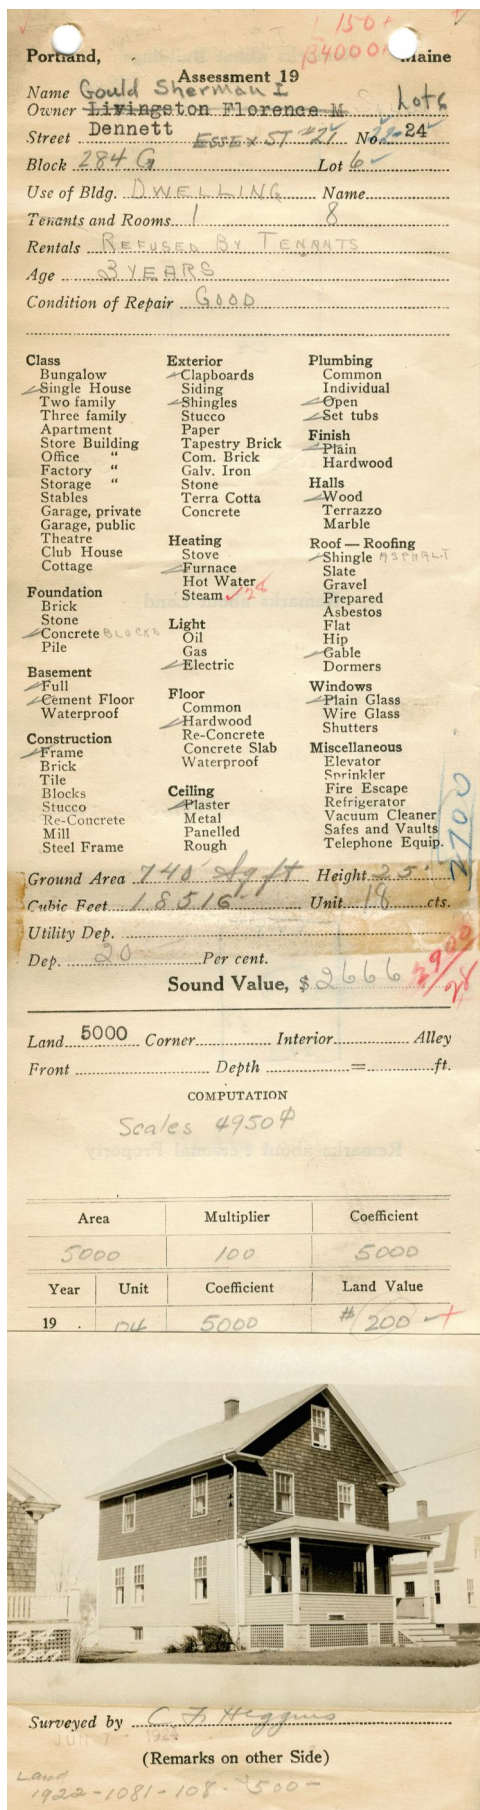 150+
4000
Portland, Maine
Assessment 19
Name Gould Sherman I Lot 6
Owner Livingston Florence M
Street Dennett ESSEX ST #27 No. 22-24
Block 284 G Lot 6
Use of Bldg. DWELLING Name
Tenants and Rooms 1 8
Rentals REFUSED BY TENANTS
Age 3 YEARS
Condition of Repair GOOD
Class
Bungalow
Single House
Two family
Three family
Apartment
Store Building
Office "
Factory "
Storage "
Stables
Garage, private
Garage, public
Theatre
Club House
Cottage
Foundation
Brick
Stone
Concrete BLOCKS
Pile
Basement
Full
Cement Floor
Waterproof
Construction
Frame
Brick
Tile
Blocks
Stucco
Re-Concrete
Mill
Steel Frame
Exterior
Clapboards
Siding
Shingles
Stucco
Paper
Tapestry Brick
Com. Brick
Galv. Iron
Stone
Terra Cotta
Concrete
Heating
Stove
Furnace
Hot Water
Steam 28
Light
Oil
Gas
Electric
Floor
Common
Hardwood
Re-Concrete
Concrete Slab
Waterproof
Ceiling
Plaster
Metal
Panelled
Rough
Plumbing
Common
Individual
Open
Set tubs
Finish
Plain
Hardwood
Halls
Wood
Terrazzo
Marble
Roof — Roofing
Shingle ASPHALT
Slate
Gravel
Prepared
Asbestos
Flat
Hip
Gable
Dormers
Windows
Plain Glass
Wire Glass
Shutters
Miscellaneous
Elevator
Sprinkler
Fire Escape
Refrigerator
Vacuum Cleaner
Safes and Vaults
Telephone Equip.
2700
Ground Area 740 Sq ft Height 25'
Cubic Feet 18516 Unit 18 cts.
Utility Dep.
Dep. 20 Per cent.
Sound Value, $ 2666
2900/28
Land 5000 Corner Interior Alley
Front Depth = ft.
COMPUTATION
Scales 4950
Area Multiplier Coefficient
5000 100 5000
Year Unit Coefficient Land Value
19 . .04 5000 $ 200
Surveyed by C F Higgins
(Remarks on other Side)
Land
1922-1081-108- $500-